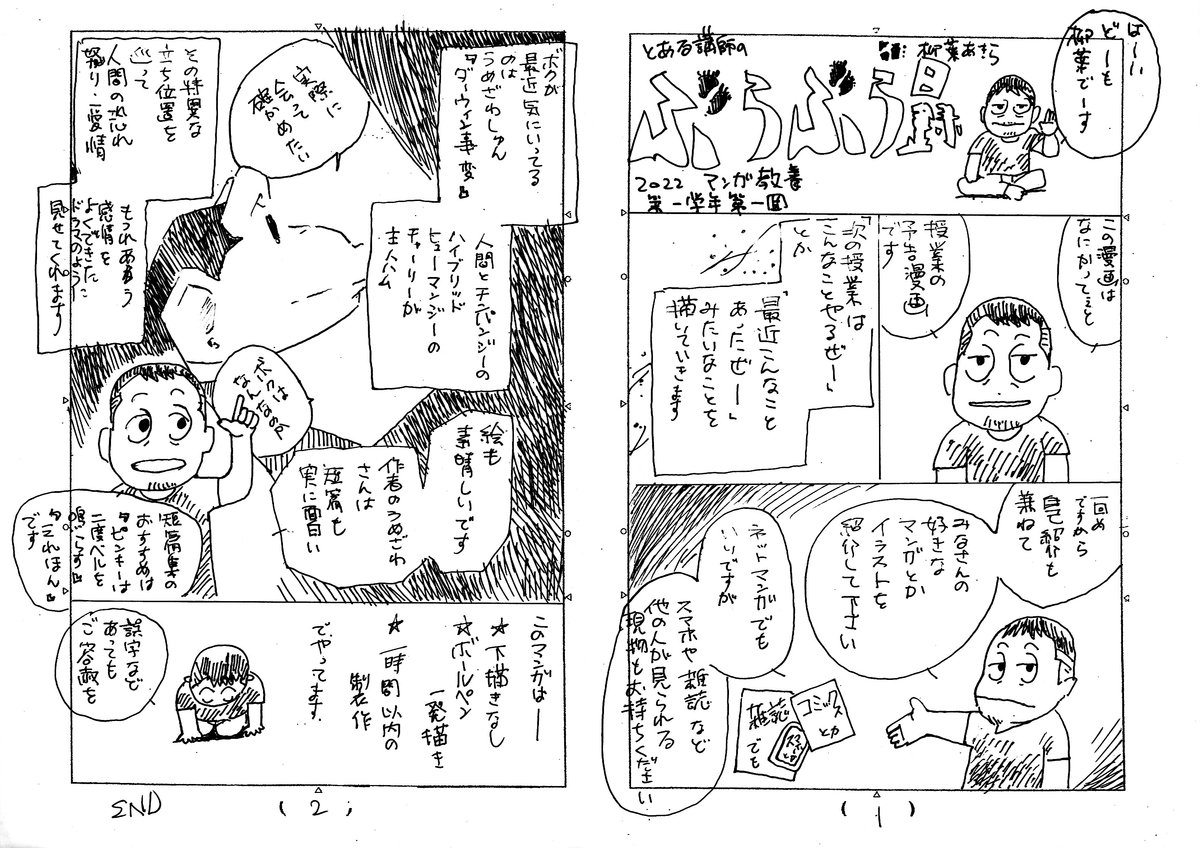 とある講師の
ぶらぶら日帰
著: 柳葉あきら
はーい
どーも
柳葉でーす
2022 マンガ教養
第一学年第一回
この漫画は
なにかってぇと
授業の
予告漫画
です
「次の授業は
こんなことやるぜー」
とか
「最近こんなこと
あったぜー」
みたいなことを
描いていきます
一回め
ですから
自己紹介も
兼ねて
みなさんの
好きな
マンガとか
イラストを
紹介して下さい
ネットマンガでも
いいですが
スマホや雑誌など
他の人が見られる
現物をお持ちください
コミックス
とか
雑誌
でも
(1)
ボクが
最近気にいってる
のは
うめざわしゅん
『ダーウィン事変』
人間とチンパンジーの
ハイブリッド
ヒューマンジーの
チャーリーが
主人公
実際に
会って
確かめたい
その特異な
立ち位置を
巡って
人間の恐れ
怒り・愛情
もつれあう
感情を
よくできた
ドラマのように
見せてくれます
ボクは
なんなのか
絵も
素晴しいです
作者のうめざわ
さんは
短篇も
実に面白い
短篇集の
おすすめは
『ピンキーは
二度ベルを
鳴らす』
です
このマンガは──
★下描きなし
★ボールペン
一発描き
★一時間以内の
制作
でやってます
誤字など
あっても
ご容赦を
END
(2)